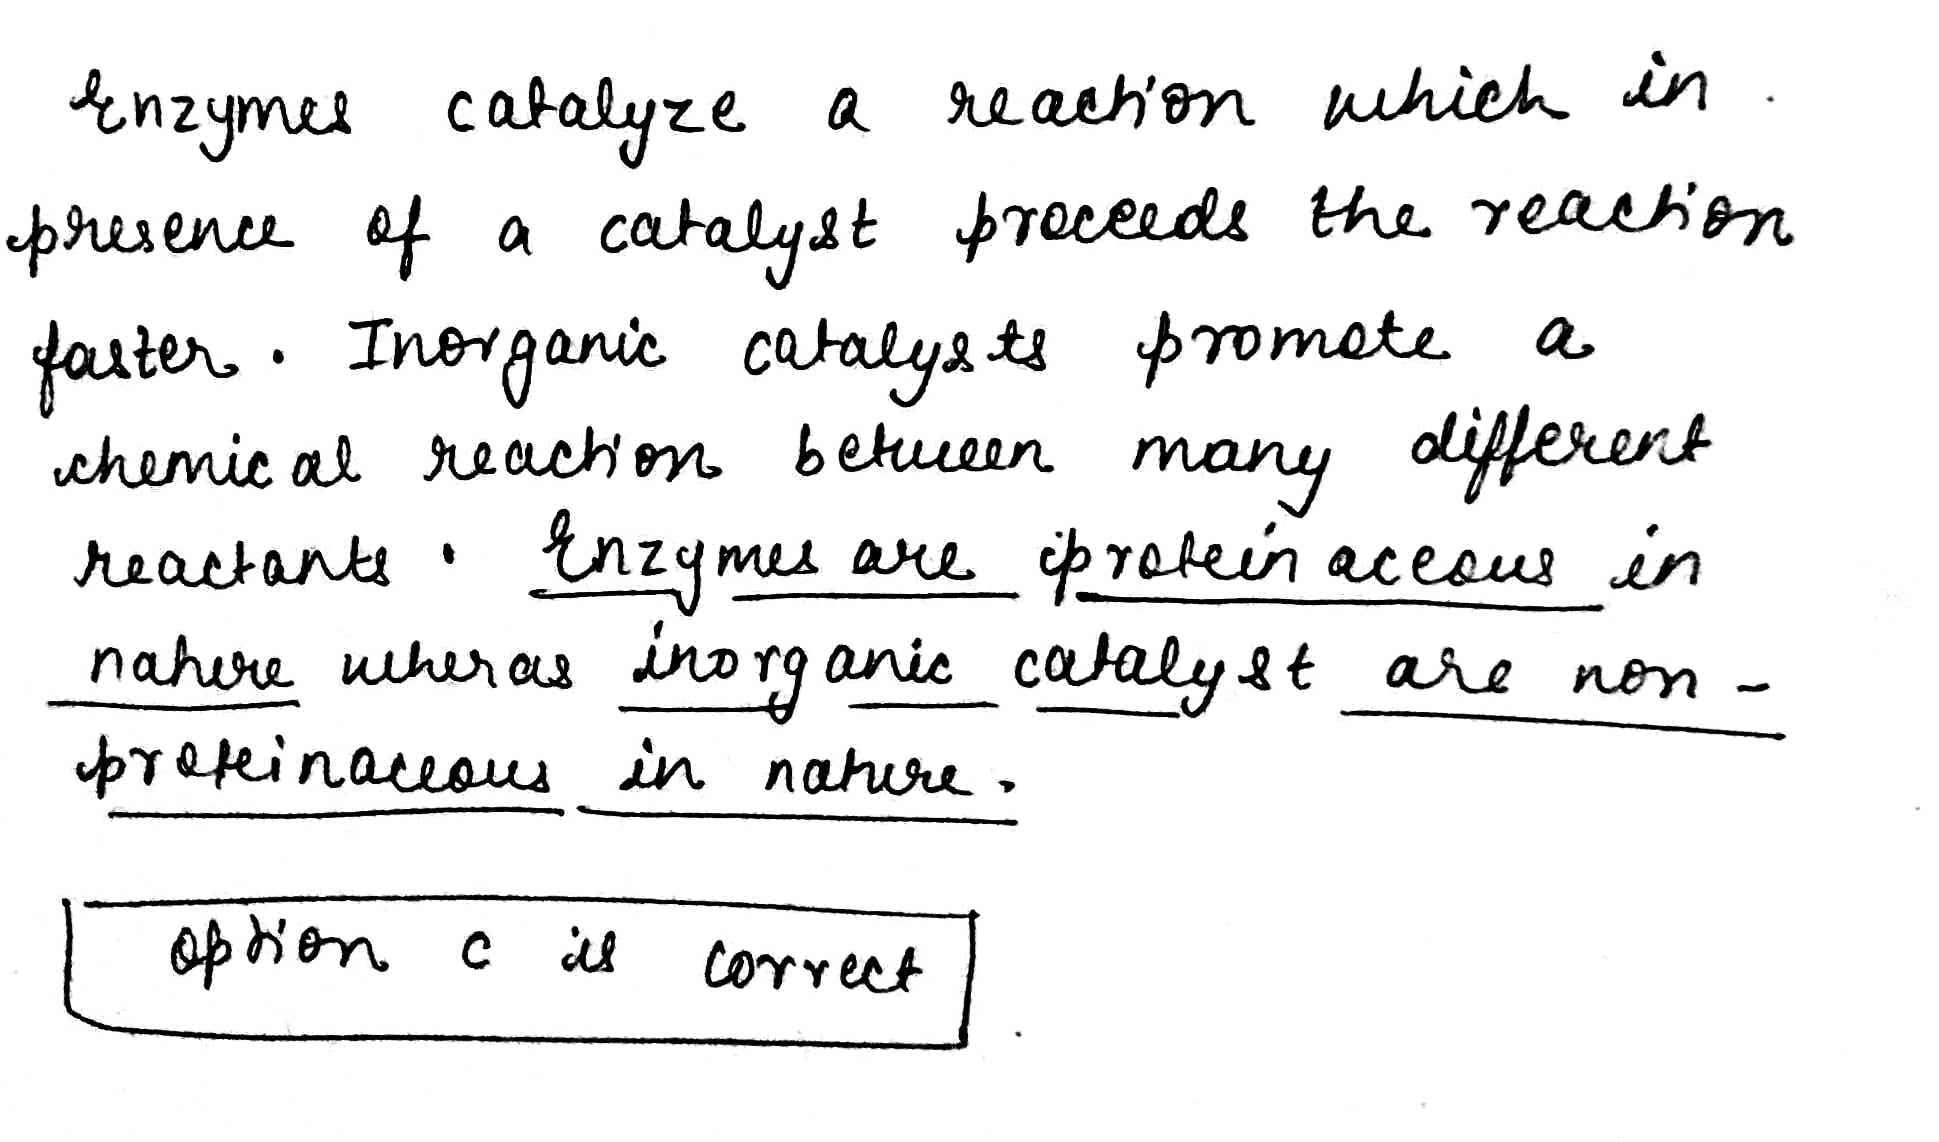 Enzymes catalyze a reaction which in
presence of a catalyst proceeds the reaction
faster. Inorganic catalysts promote a
chemical reaction between many different
reactants. Enzymes are proteinaceous in
nature wheras inorganic catalyst are non-
proteinaceous in nature.
option c is correct